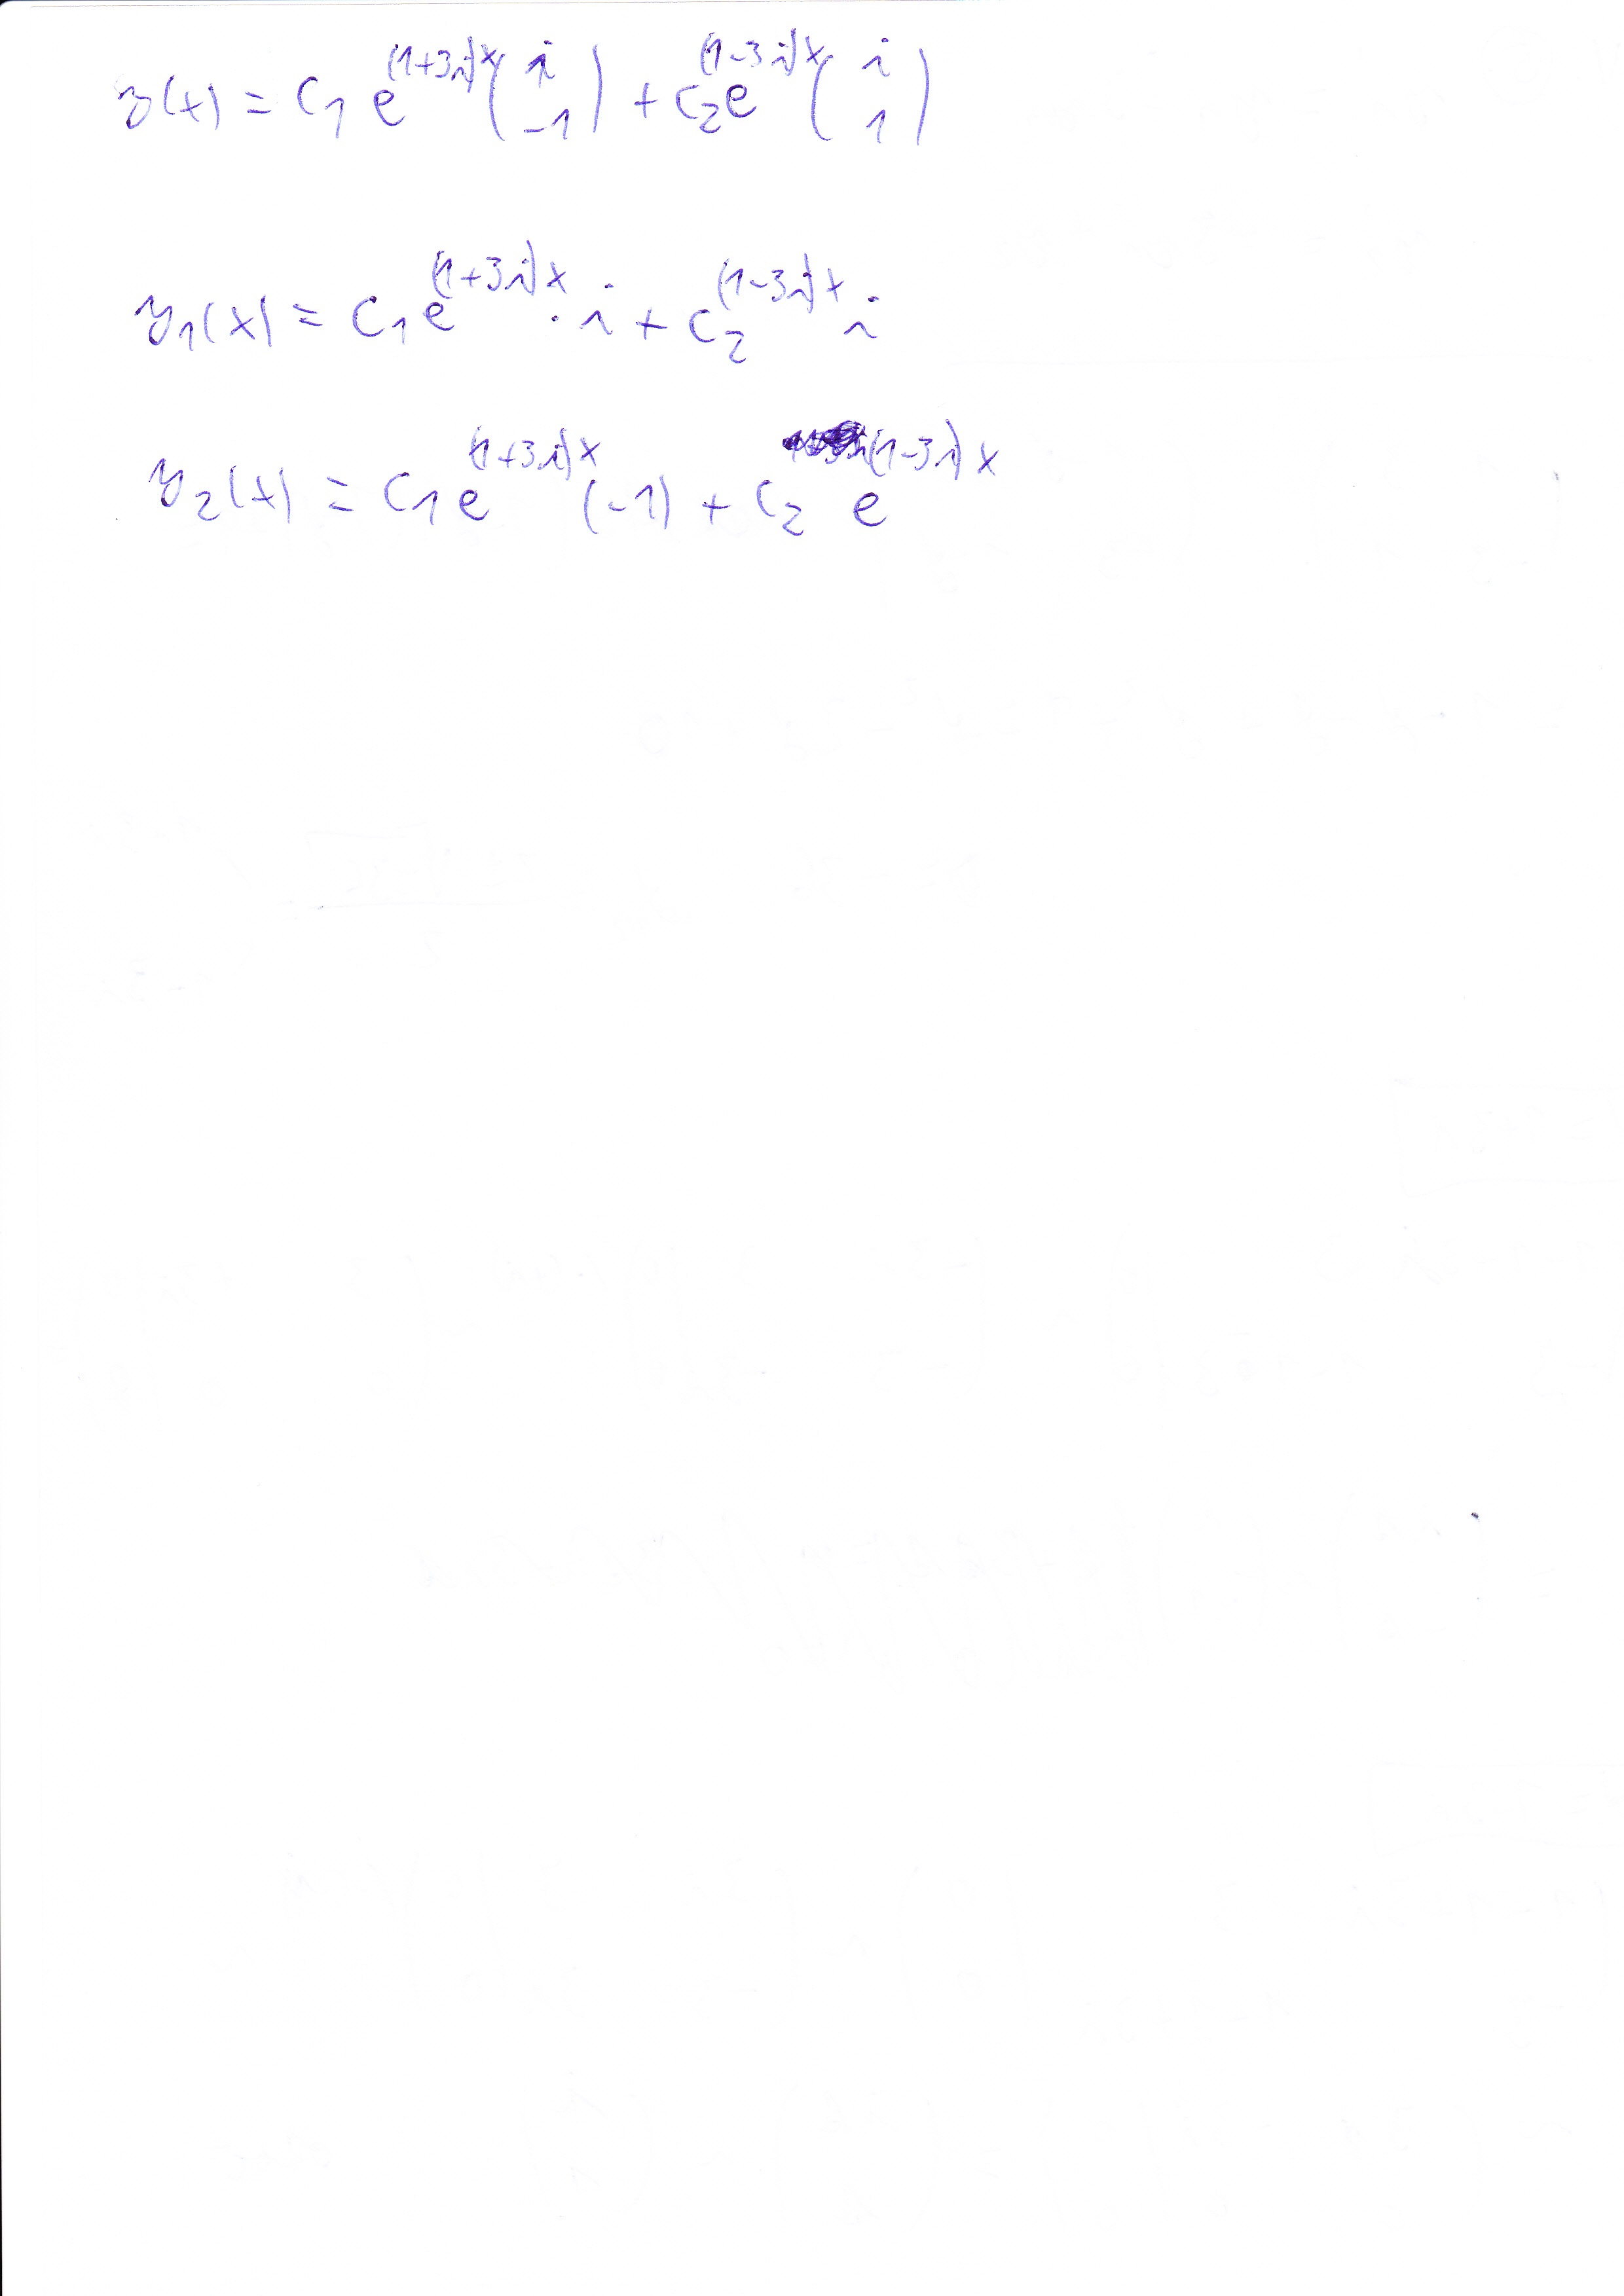 y(x) = C₁ e^{(1+3i)x} \begin{pmatrix} i \\ -1 \end{pmatrix} + C₂ e^{(1-3i)x} \begin{pmatrix} i \\ 1 \end{pmatrix}
y₁(x) = C₁ e^{(1+3i)x} · i + C₂^{(1-3i)x} i
y₂(x) = C₁ e^{(1+3i)x} (-1) + C₂ e^{(1-3i)x}